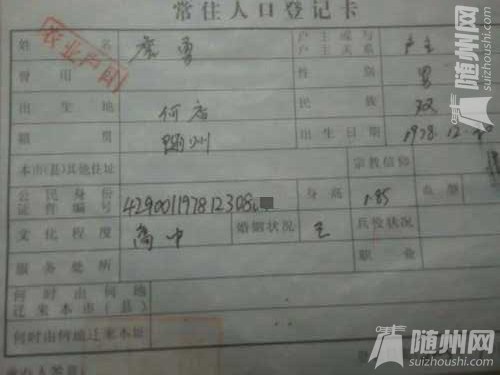 常住人口登记卡
随州网
suizhoushi.com
农业户口
姓名 勇 户主或与户主关系 户主
曾用 性别 男
出生地 何店 民族 汉
籍贯 随州 出生日期 1978.12.
本市(县)其他住址 宗教信仰
公民身份证件编号 42900119781230 身高 1.85 血型
文化程度 高中 婚姻状况 兵役状况
服务处所 职业
何时由何地迁来本市(县)
何时由何地迁来本址
随州网
suizhoushi.com